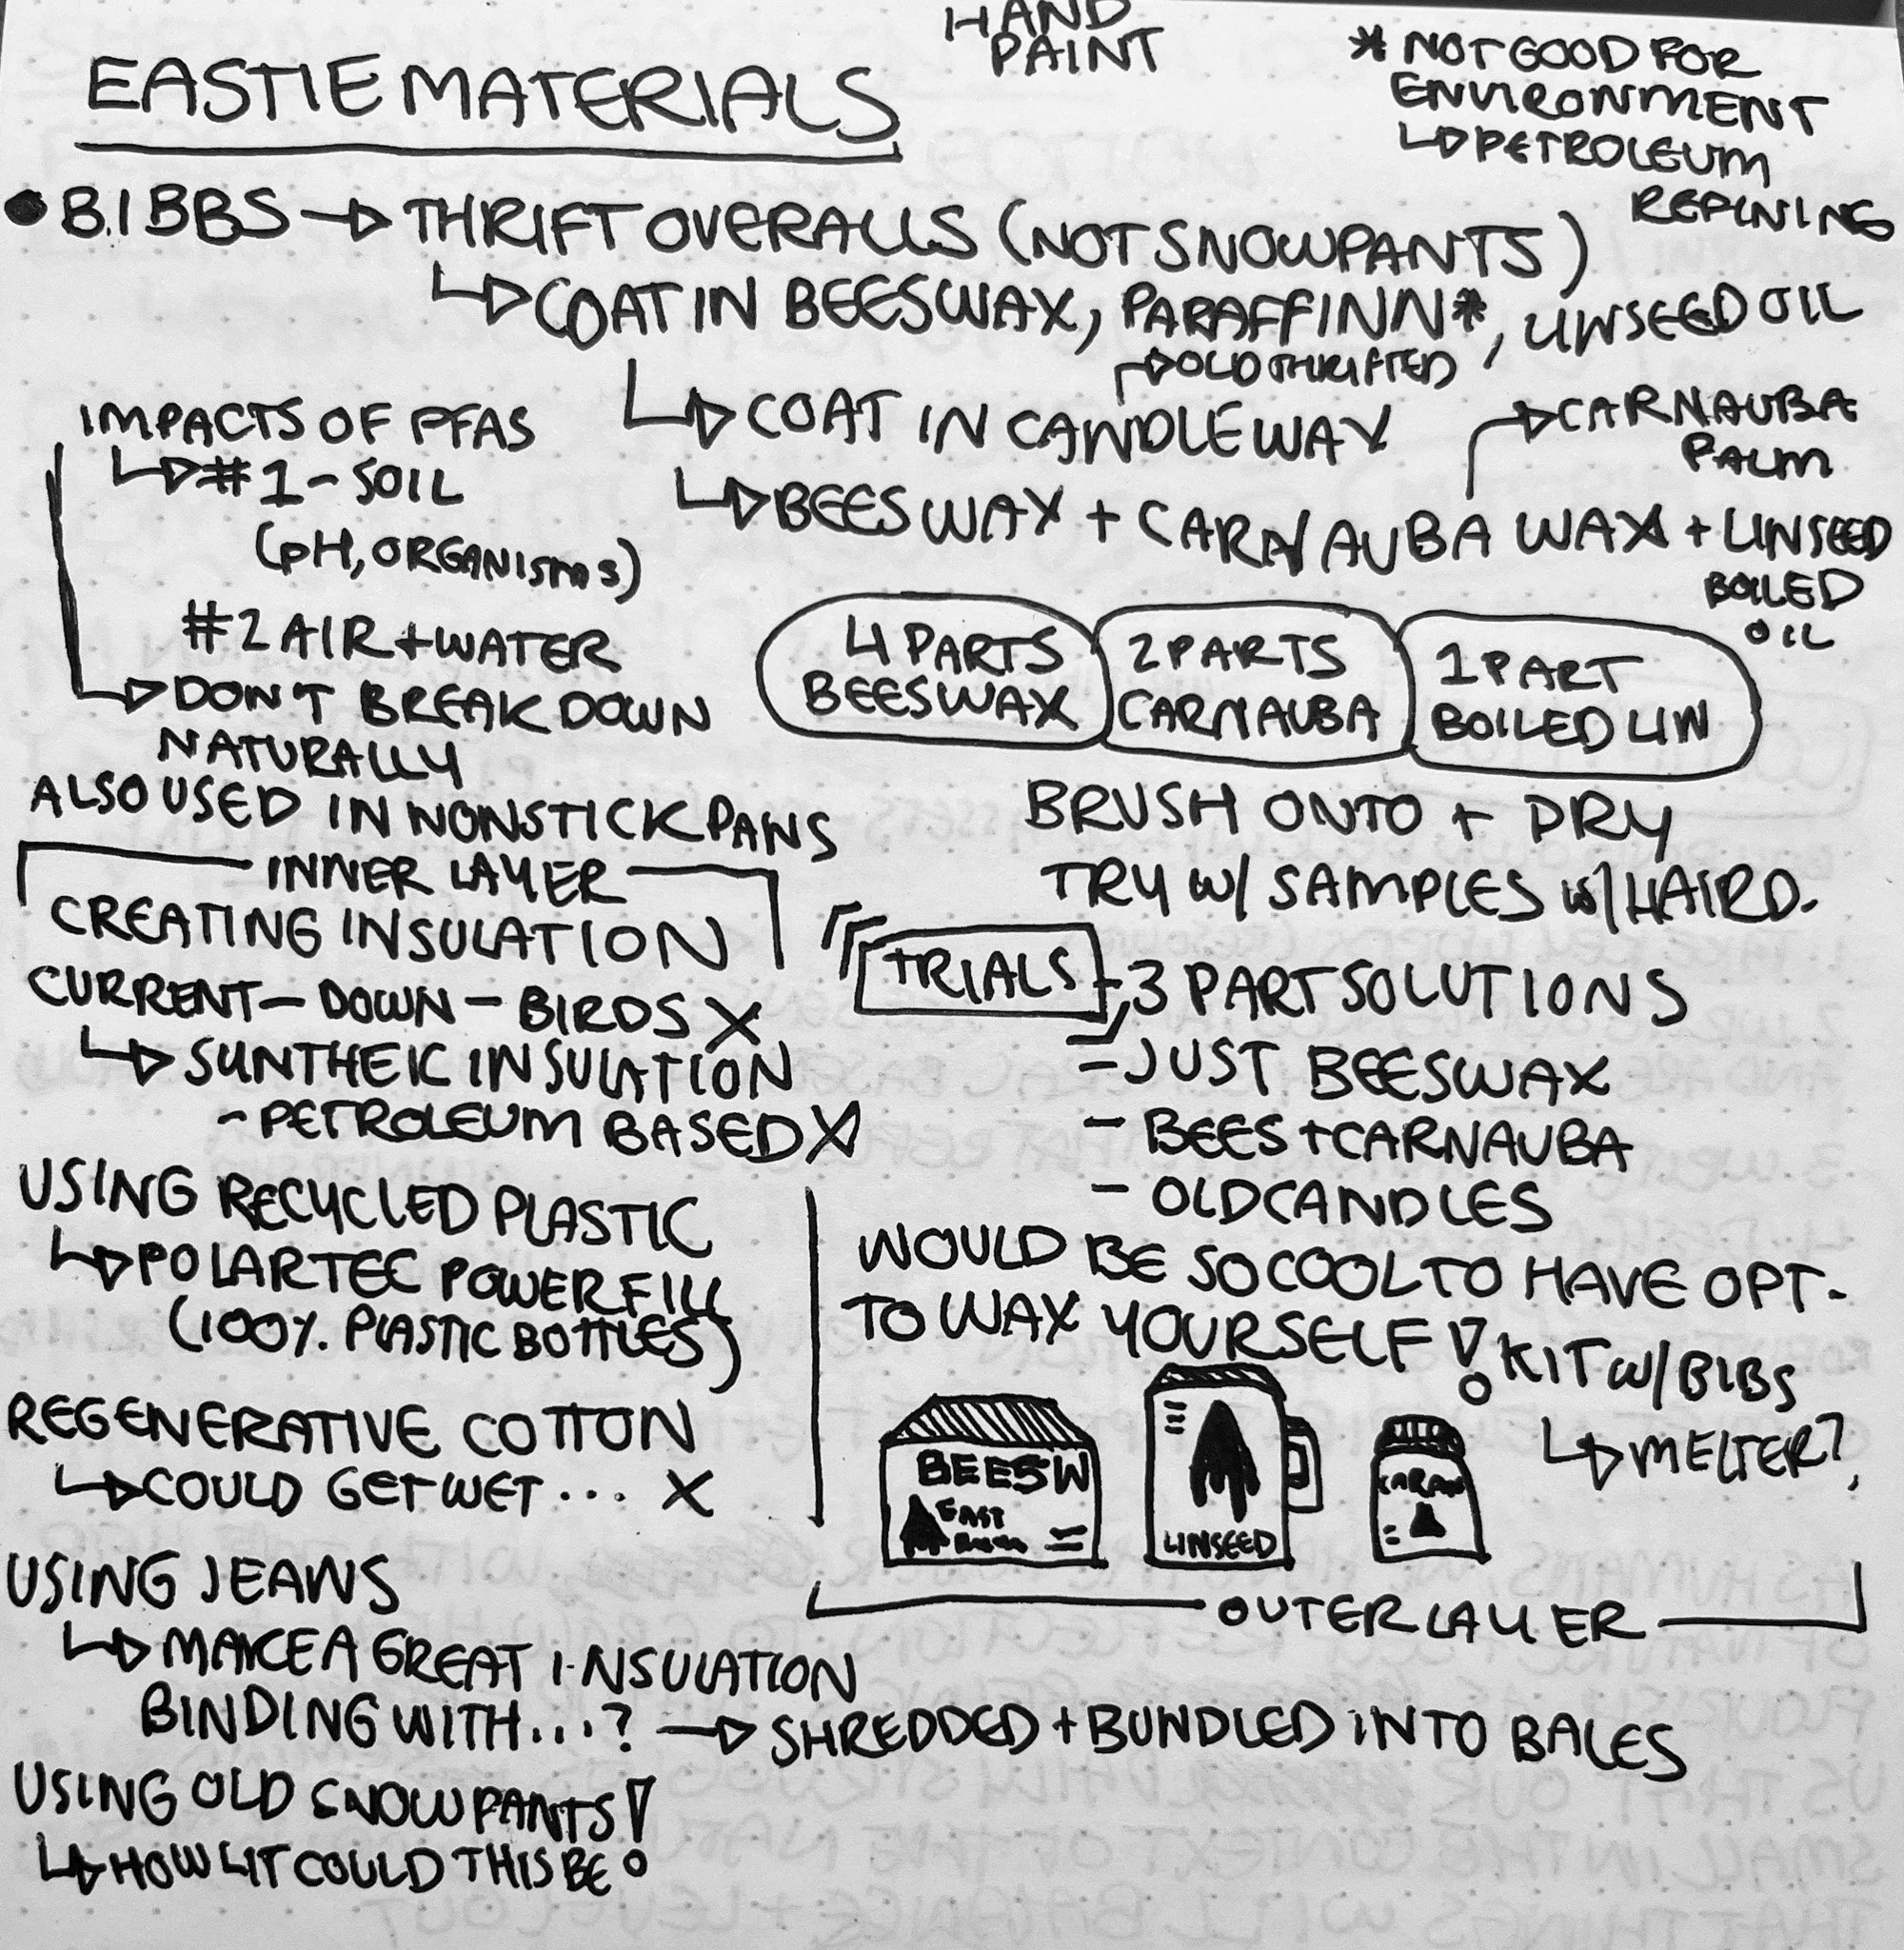 HAND
PAINT
EASTIE MATERIALS
* NOT GOOD FOR
ENVIRONMENT
PETROLEUM
REFINING
BIBBS → THRIFT OVERALLS (NOT SNOWPANTS)
COAT IN BEESWAX, PARAFFINN*, LINSEED OIL
OLD THRIFTED
COAT IN CANDLE WAX
CARNAUBA
PALM
BEESWAX + CARNAUBA WAX + LINSEED
BOILED
OIL
4 PARTS
BEESWAX
2 PARTS
CARNAUBA
1 PART
BOILED LIN
BRUSH ONTO + DRY
TRY W/ SAMPLES W/ HAIRD.
TRIALS
3 PART SOLUTIONS
- JUST BEESWAX
- BEES + CARNAUBA
- OLD CANDLES
WOULD BE SO COOL TO HAVE OPT-
TO WAX YOURSELF!
KIT W/ BIBS
MELTER?
BEESW
EAST
LINSEED
OUTER LAYER
IMPACTS OF PFAS
#1 - SOIL
(pH, ORGANISMS)
#2 AIR + WATER
DON'T BREAK DOWN
NATURALLY
ALSO USED IN NONSTICK PANS
INNER LAYER
CREATING INSULATION
CURRENT - DOWN - BIRDS X
SYNTHEIC INSULATION
- PETROLEUM BASED X
USING RECYCLED PLASTIC
POLARTEC POWERFILL
(100% PLASTIC BOTTLES)
REGENERATIVE COTTON
COULD GET WET ... X
USING JEANS
MAKE A GREAT INSULATION
BINDING WITH...? → SHREDDED + BUNDLED INTO BALES
USING OLD SNOWPANTS!
HOW LIT COULD THIS BE